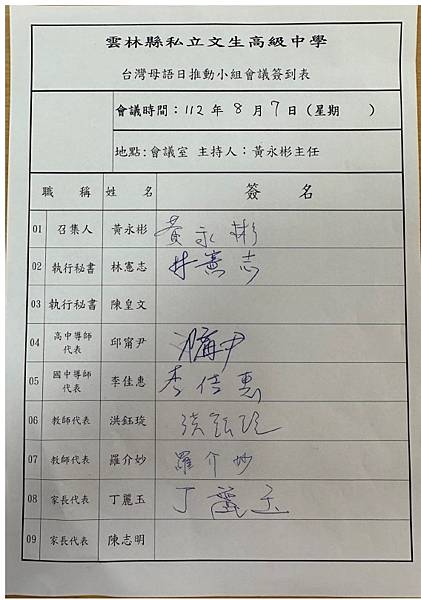 雲林縣私立文生高級中學
台灣母語日推動小組會議簽到表
會議時間：112 年 8 月 7 日（星期　　）
地點:會議室 主持人：黃永彬主任
職 稱 姓 名 簽 名
01 召集人 黃永彬 黃永彬
02 執行秘書 林憲志 林憲志
03 執行秘書 陳皇文
04 高中導師代表 邱甯尹
05 國中導師代表 李佳惠 李佳惠
06 教師代表 洪鈺琁 洪鈺琁
07 教師代表 羅介妙 羅介妙
08 家長代表 丁麗玉 丁麗玉
09 家長代表 陳志明